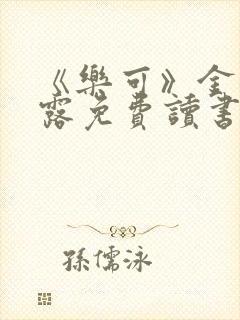 《樂可》金
露免費讀書
孫儒泳